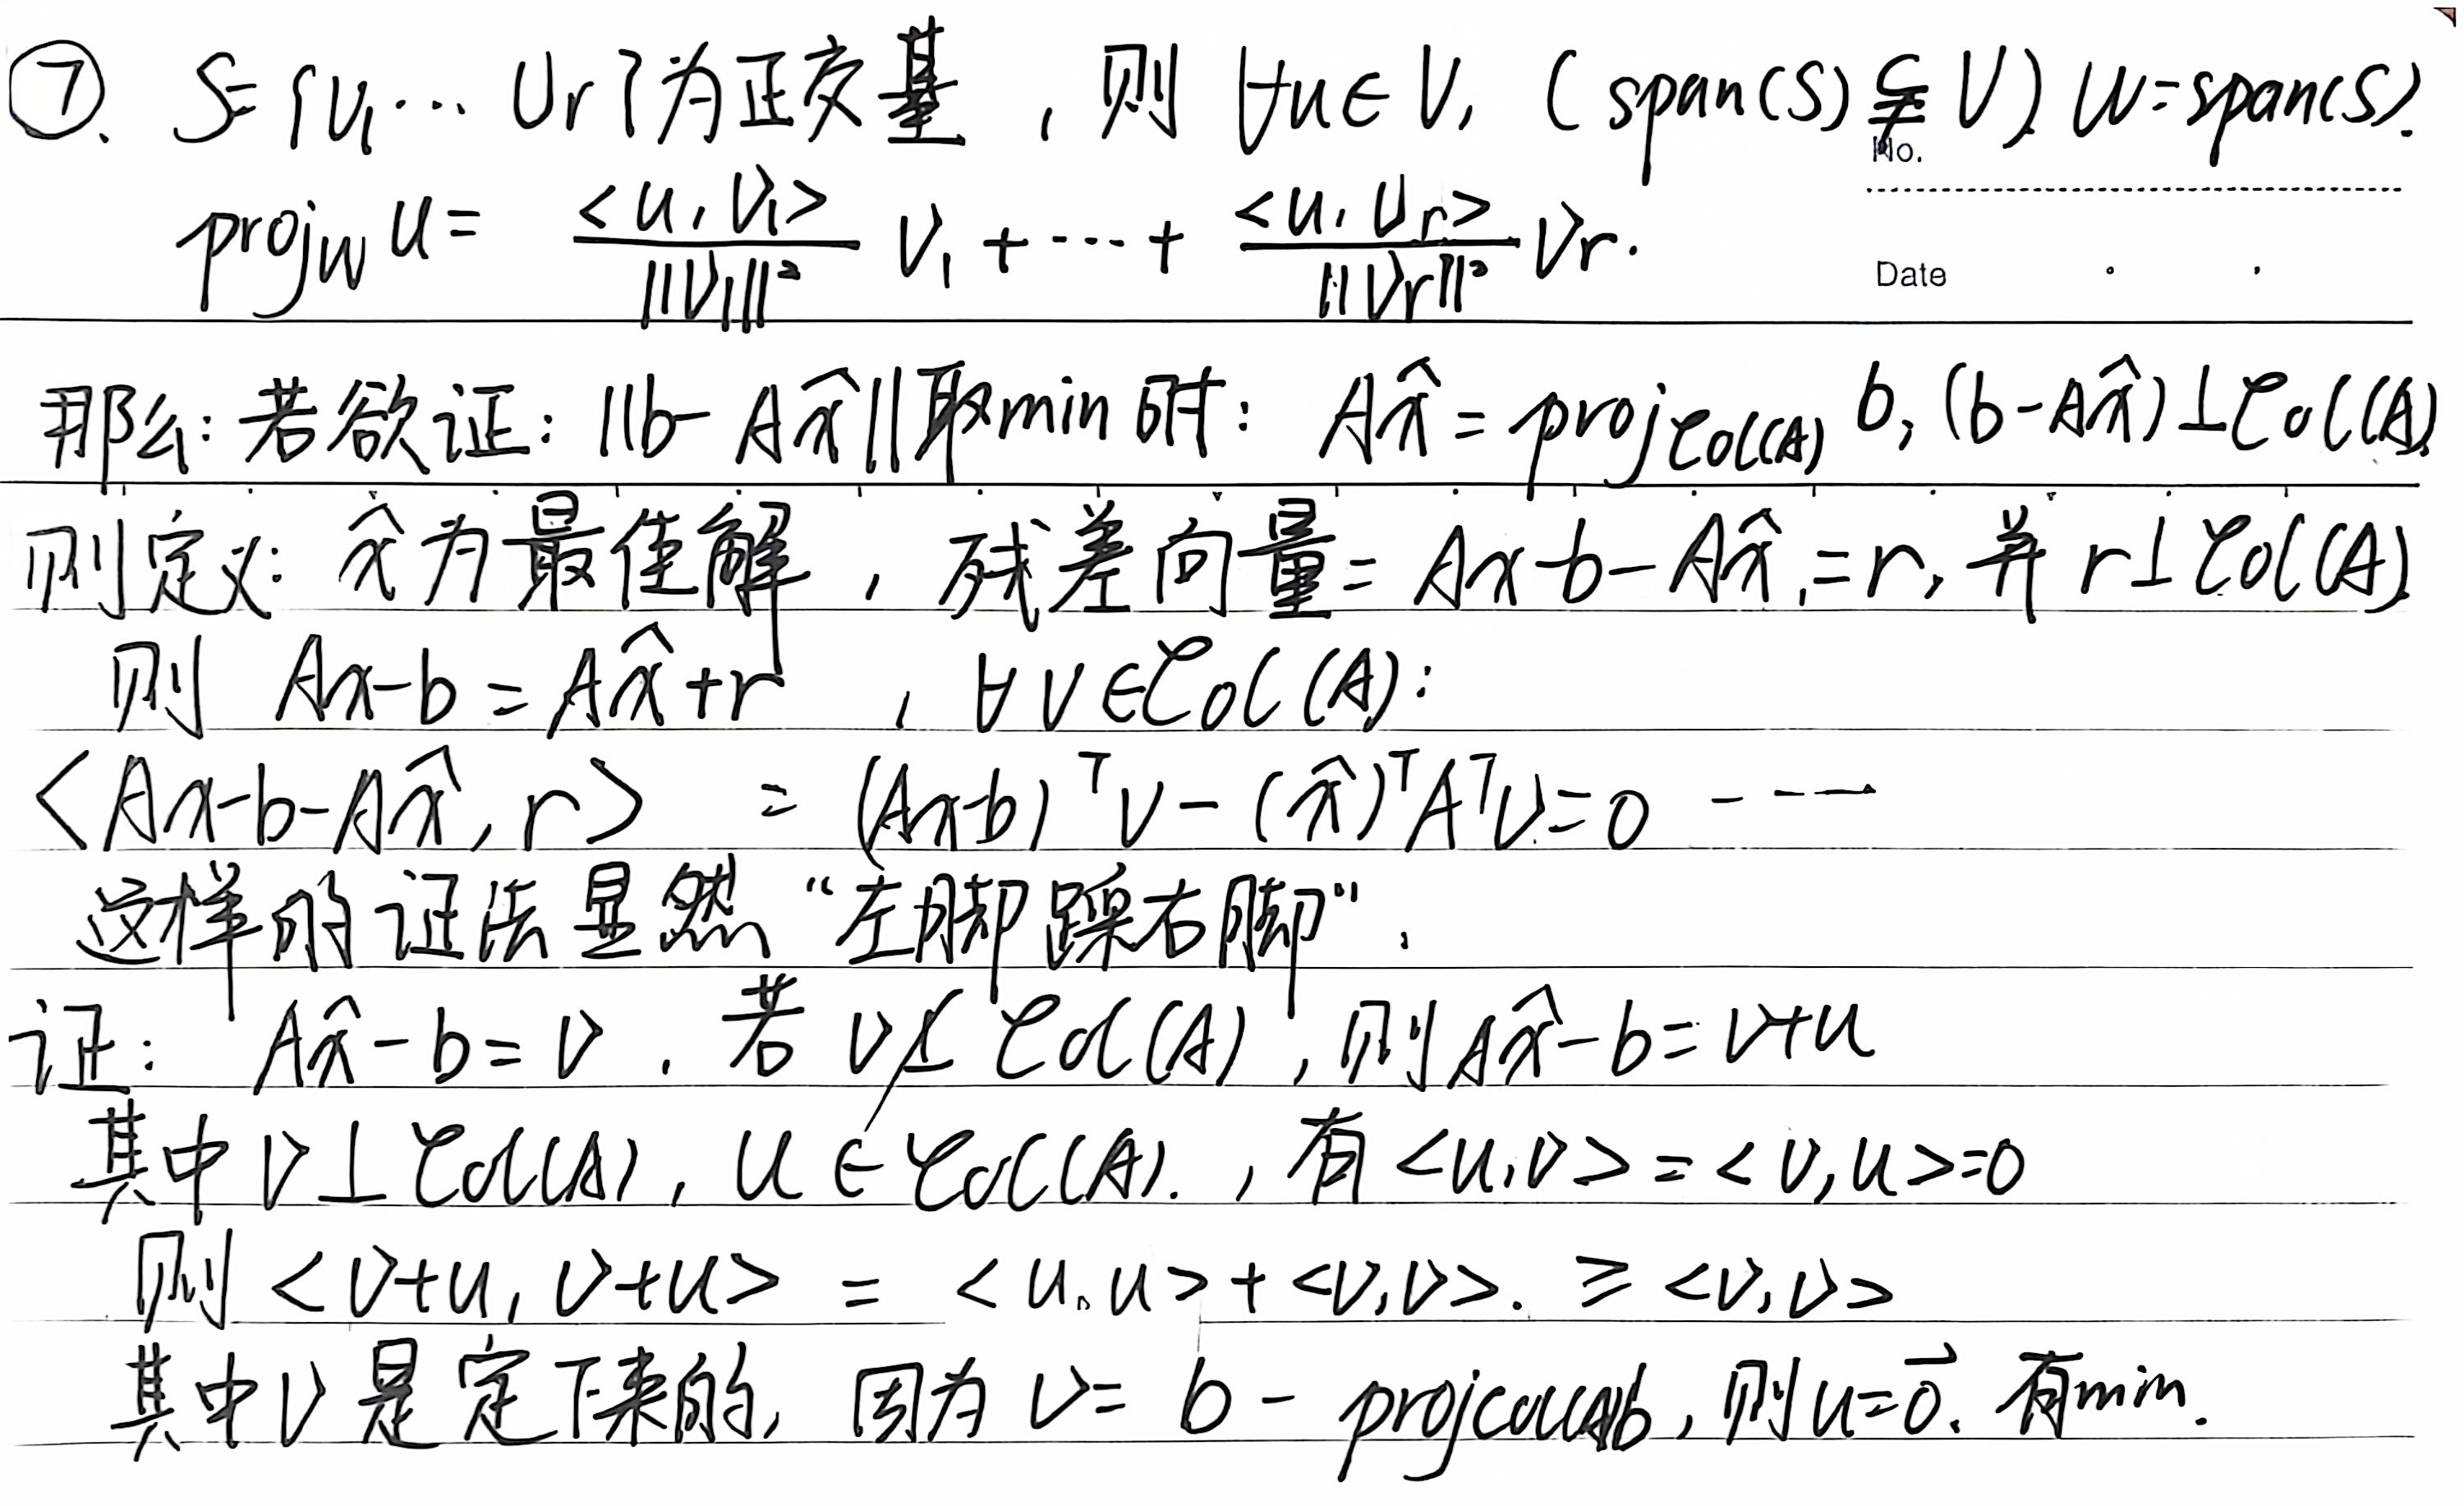 ⑦. S={v₁⋯ vᵣ}为正交基，则 ∀u∈V, (span(S)⫋V) W=span(S).
No.
projw u= <u,v₁>/||v₁||² v₁+⋯+ <u,vᵣ>/||vᵣ||² vᵣ.
Date
那么:若欲证: ||b-Ax̂||取min时: Ax̂=projCol(A) b, (b-Ax̂)⊥Col(A)
则定义: x̂为最佳解，残差向量=Ax-b-Ax̂,=r, 并 r⊥Col(A).
则 Ax-b=Ax̂+r , ∀v∈Col(A):
<Ax-b-Ax̂, r> =(Ax-b)ᵀv-(x̂)ᵀAᵀv=0 ----
这样的证法显然“左脚踩右脚”.
证: Ax̂-b=v. 若 v⊥̸Col(A), 则Ax̂-b=v+u
其中 v⊥Col(A), u∈Col(A)., 有<u,v>=<v,u>=0
则<v+u, v+u> = <u,u>+<v,v>. ≥ <v,v>
其中v是定下来的, 因为 v= b - projcol(A)b, 则u=0⃗. 有min.